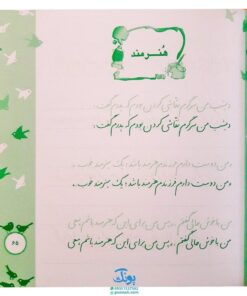 هُنرمند
دیشب من سرگرم نقاشی کردن بودم که پدرم گفت:
دیشب من سرگرم نقاشی کردن بودم که پدرم گفت:
من دوست دارم فرزندم هنرمند باشد؛ یک هنرمند خوب.
من دوست دارم فرزندم هنرمند باشد؛ یک هنرمند خوب.
من با خوش‌حالی گفتم: پس من برای این که هنرمند باشم، سعی
من با خوش‌حالی گفتم: پس من برای این که هنرمند باشم، سعی
۶۵
پونک